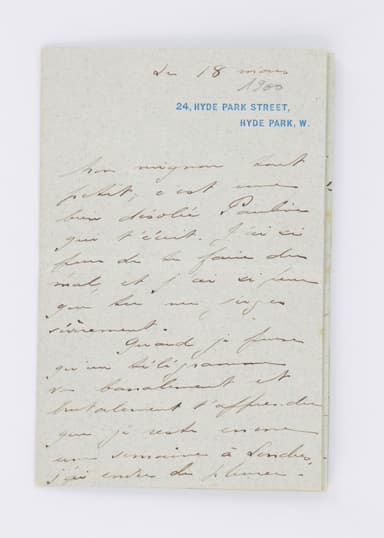 Du 18 mars
1900
24, HYDE PARK STREET,
HYDE PARK, W.
Mon mignon tout
petit, c'est une
bien désolée Pauline
qui t'écrit. J'ai si
peur de te faire du
mal, et j'ai si peur
que tu me juges
sévèrement.
Quand je pense
qu'un télégramme
va banalement et
brutalement t'apprendre
que je reste encore
une semaine à Londres,
j'ai envie de pleurer.